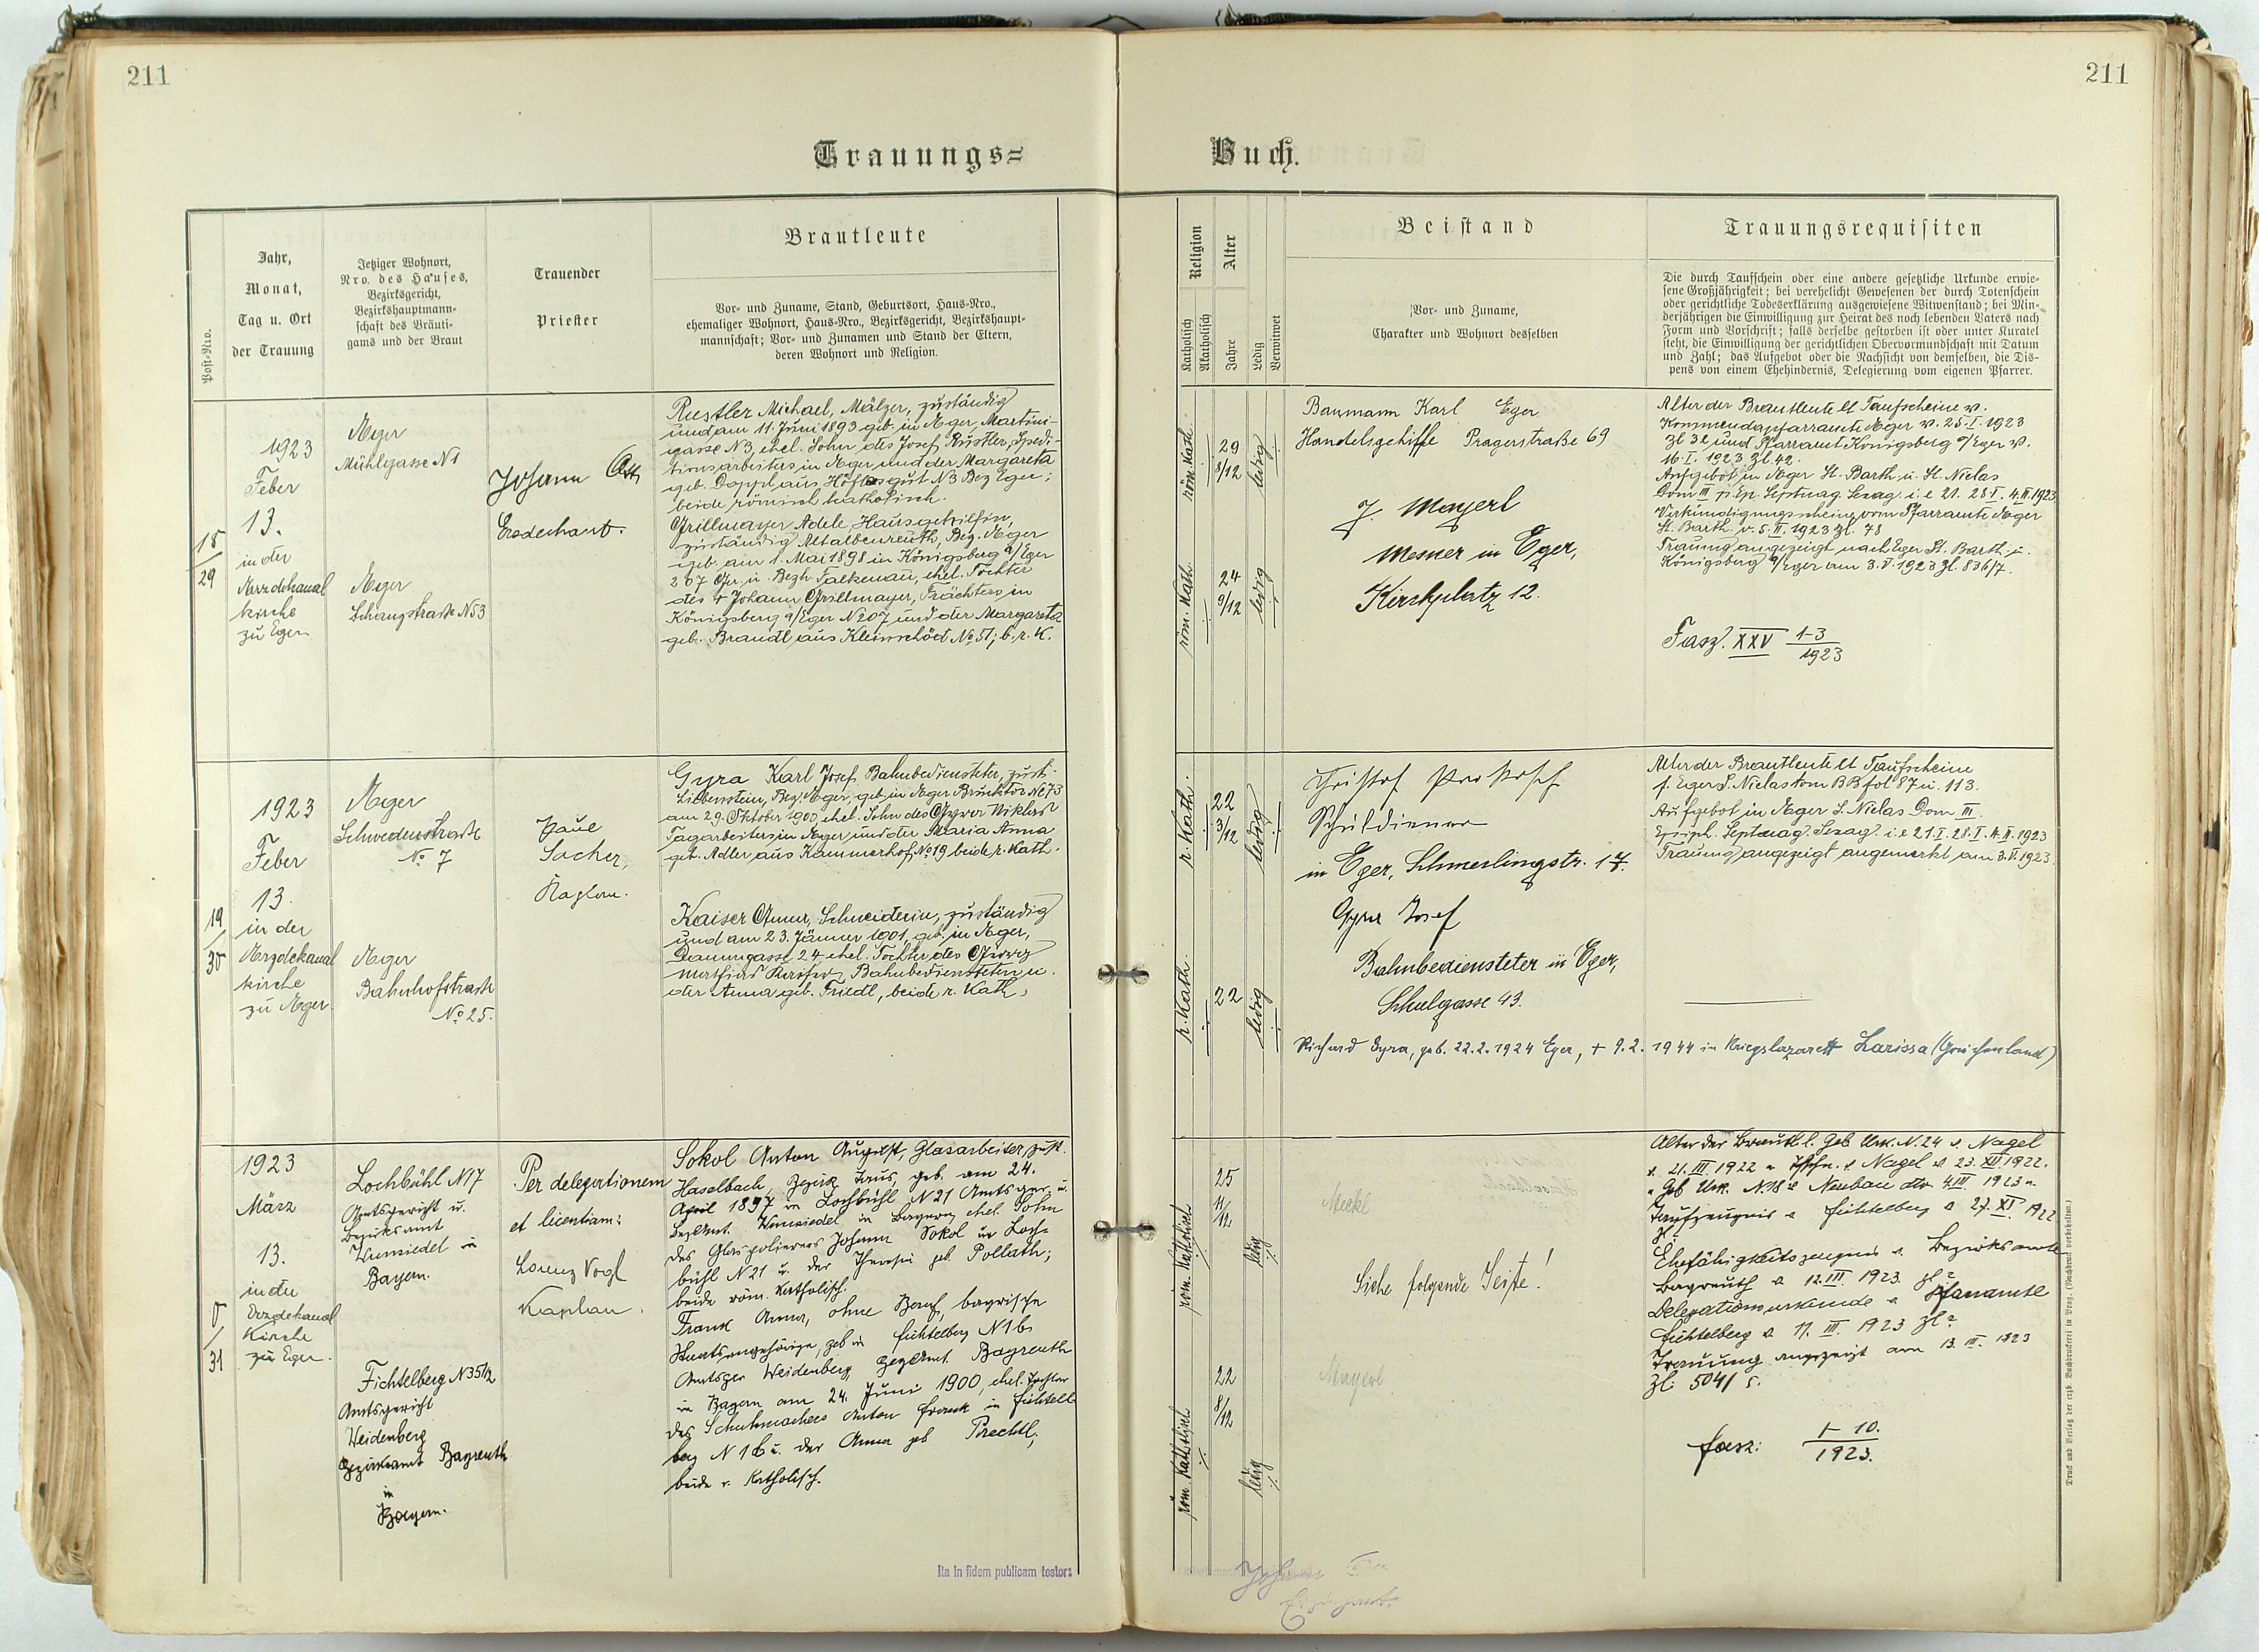 211
211
Trauungs=
Buch.
Post-Nro.
Jahr,
Monat,
Tag u. Ort
der Trauung
Jetziger Wohnort,
Nro. des Hauses,
Bezirksgericht,
Bezirkshauptmann-
schaft des Bräuti-
gams und der Braut
Trauender
Priester
Brautleute
Vor- und Zuname, Stand, Geburtsort, Haus-Nro.,
ehemaliger Wohnort, Haus-Nro., Bezirksgericht, Bezirkshaupt-
mannschaft; Vor- und Zunamen und Stand der Eltern,
deren Wohnort und Religion.
Religion
Katholisch
Akatholisch
Alter
Jahre
Ledig
Verwitwet
Beistand
Vor- und Zuname,
Charakter und Wohnort desselben
Trauungsrequisiten
Die durch Taufschein oder eine andere gesetzliche Urkunde erwie-
sene Großjährigkeit; bei verehelicht Gewesenen der durch Totenschein
oder gerichtliche Todeserklärung ausgewiesene Witwenstand; bei Min-
derjährigen die Einwilligung zur Heirat des noch lebenden Vaters nach
Form und Vorschrift; falls derselbe gestorben ist oder unter Kuratel
steht, die Einwilligung der gerichtlichen Obervormundschaft mit Datum
und Zahl; das Aufgebot oder die Nachsicht von demselben, die Dis-
pens von einem Ehehindernis, Delegierung vom eigenen Pfarrer.
18/29
1923
Feber
13.
in der
kirche
zu Eger
Eger
Mühlgasse N 1
Eger
Schanzstraße N 53
Johann
Erzdechant.
Rustler Michael, Mälzer, zuständig
und am 11. Juni 1893 geb. in Eger, Martini-
gasse N 3, ehel. Sohn des Josef Rustler, Spedi-
tionsarbeiters in Eger und der Margareta
geb. Doppl aus N 3 Bez Eger;
beide römisch katholisch.
Grillmayer Adele, Hausgehilfin,
zuständig Altalbenreuth, Bez. Eger
geb. am 1. Mai 1898 in Königsberg a/Eger
207 Falkenau, ehel. Tochter
des † Johann Grillmayer, in
Königsberg a/Eger N 207 und der Margareta
geb. Brandl aus N° 51; b. r. K.
röm. Kath.
29
8/12
ledig
röm. Kath.
24
9/12
ledig
Baumann Karl Eger
Handelsgehilfe Pragerstraße 69
J. Mayerl
Mesner in Eger,
Kirchplatz 12.
Alter der Brautleute lt Taufscheine v.
Kommendapfarramte Eger v. 25. I. 1923
Zl 32 und Pfarramt Königsberg a/Eger v.
16. I. 1923 Zl. 42.
Aufgebot in Eger St. Barth. u. St. Niclas
Dom III p. Ep. Septuag. Sexag. i. e 21. 28 I. 4. II. 1923
Verkündigungsscheine vom Pfarramte Eger
St. Barth. v. 5. II. 1923 Zl. 78
Trauung angezeigt nach Eger St. Barth. u.
Königsberg a/Eger am 3. V. 1923 Zl. 836/7.
Fasz. XXV 1-3/1923
19/30
1923
Feber
13.
in der
kirche
zu Eger.
Eger
Schwedenstraße
N° 7
Eger
Bahnhofstraße
N° 25.
Paul
Sacher,
Kaplan.
Gyra Karl Josef Bahnbediensteter, zust.
Liebenstein, Bez. Eger, geb. in Eger Brucktor N° 73
am 29. Oktober 1900, ehel. Sohn des Gyra Niklas
Tagarbeiters in Eger und der Maria Anna
geb. Adler aus Kammerhof N° 19 beide r. Kath.
Kaiser Anna, Schneiderin, zuständig
und am 23. Jänner 1901, geb. in Eger,
24 ehel. Tochter des
Mathias Bahnbediensteten u.
der Anna geb. Friedl, beide r. Kath.
r. Kath.
22
3/12
ledig
r. Kath.
22
ledig
Schuldiener
in Eger, Schmerlingstr. 17.
Gyra Josef
Bahnbediensteter in Eger,
Schulgasse 43.
Alter der Brautleute lt Taufscheine
f. Eger S. Niclas tom BB fol 87 u. 113.
Aufgebot in Eger S. Niclas Dom III.
Epiph. Septuag. Sexag. i. e 21. I. 28. I. 4. II. 1923
Trauung angezeigt angemerkt am 3. V. 1923.
Richard Gyra, geb. 22.2.1924 Eger, + 9.2.1944 in Kriegslazarett Larissa (Griechenland)
31
1923
März
13.
in der
Erzdekanal
Kirche
zu Eger.
Lochbühl N 17
Amtsgericht u.
Bezirksamt
Wunsiedel in
Bayern.
Fichtelberg N 35 1/2
Amtsgericht
Weidenberg
Bezirksamt Bayreuth
in
Bayern.
Per delegationem
et licentiam:
Lorenz Vogl
Kaplan.
Sokol Anton August, Glasarbeiter, zust.
Haselbach, Bezirk Taus, geb. am 24.
April 1897 in Lochbühl N 21 Amtsger. u.
Bez. Amt. Wunsiedel in Bayern, ehel. Sohn
des Glaspolierers Johann Sokol in Loch-
bühl N 21 u. der Theresia geb. Pollath;
beide röm. katholisch.
Frank Anna, ohne Beruf, bayrische
Staatsangehörige, geb in Fichtelberg N 16
Amtsger Weidenberg, Bez. Amt. Bayreuth
in Bayern am 24. Juni 1900, ehel. Tochter
des Schuhmachers Anton Frank in Fichtel-
berg N 16 u. der Anna geb Prechtl;
beide r. katholisch.
röm. Katholisch
25
11/12
ledig
röm. Katholisch
22
8/12
ledig
Meckl
Siehe folgende Seite!
Mayerl
Alter der Brautl. l. Geb Urk. N. 24 v. Nagel
v. 21. III. 1922 u. v. Nagel v 23. XII. 1922.
u Geb Urk. N. 18 v Neubau dto 4. III. 1923 u.
Taufzeugnis v Fichtelberg v 27. XI. 1922
Ehefähigkeitszeugnis v. Bezirksamte
Bayreuth v 12. III. 1923. Zl ?
Delegationsurkunde v Pfarramte
Fichtelberg v 11. III. 1923 Zl ?
Trauung angezeigt am 13. III. 1923
Zl: 5041
fasz: 1-10./1923.
Ita in fidem publicam testor:
Johann
Druck und Verlag der erzb. Buchdruckerei in Prag. (Nachdruck vorbehalten.)